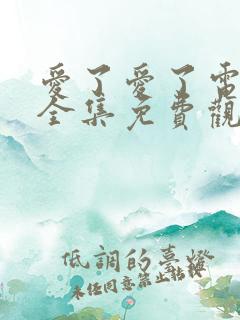 愛了愛了電
全集免費觀
低調的慕燈
未經同意禁止轉載